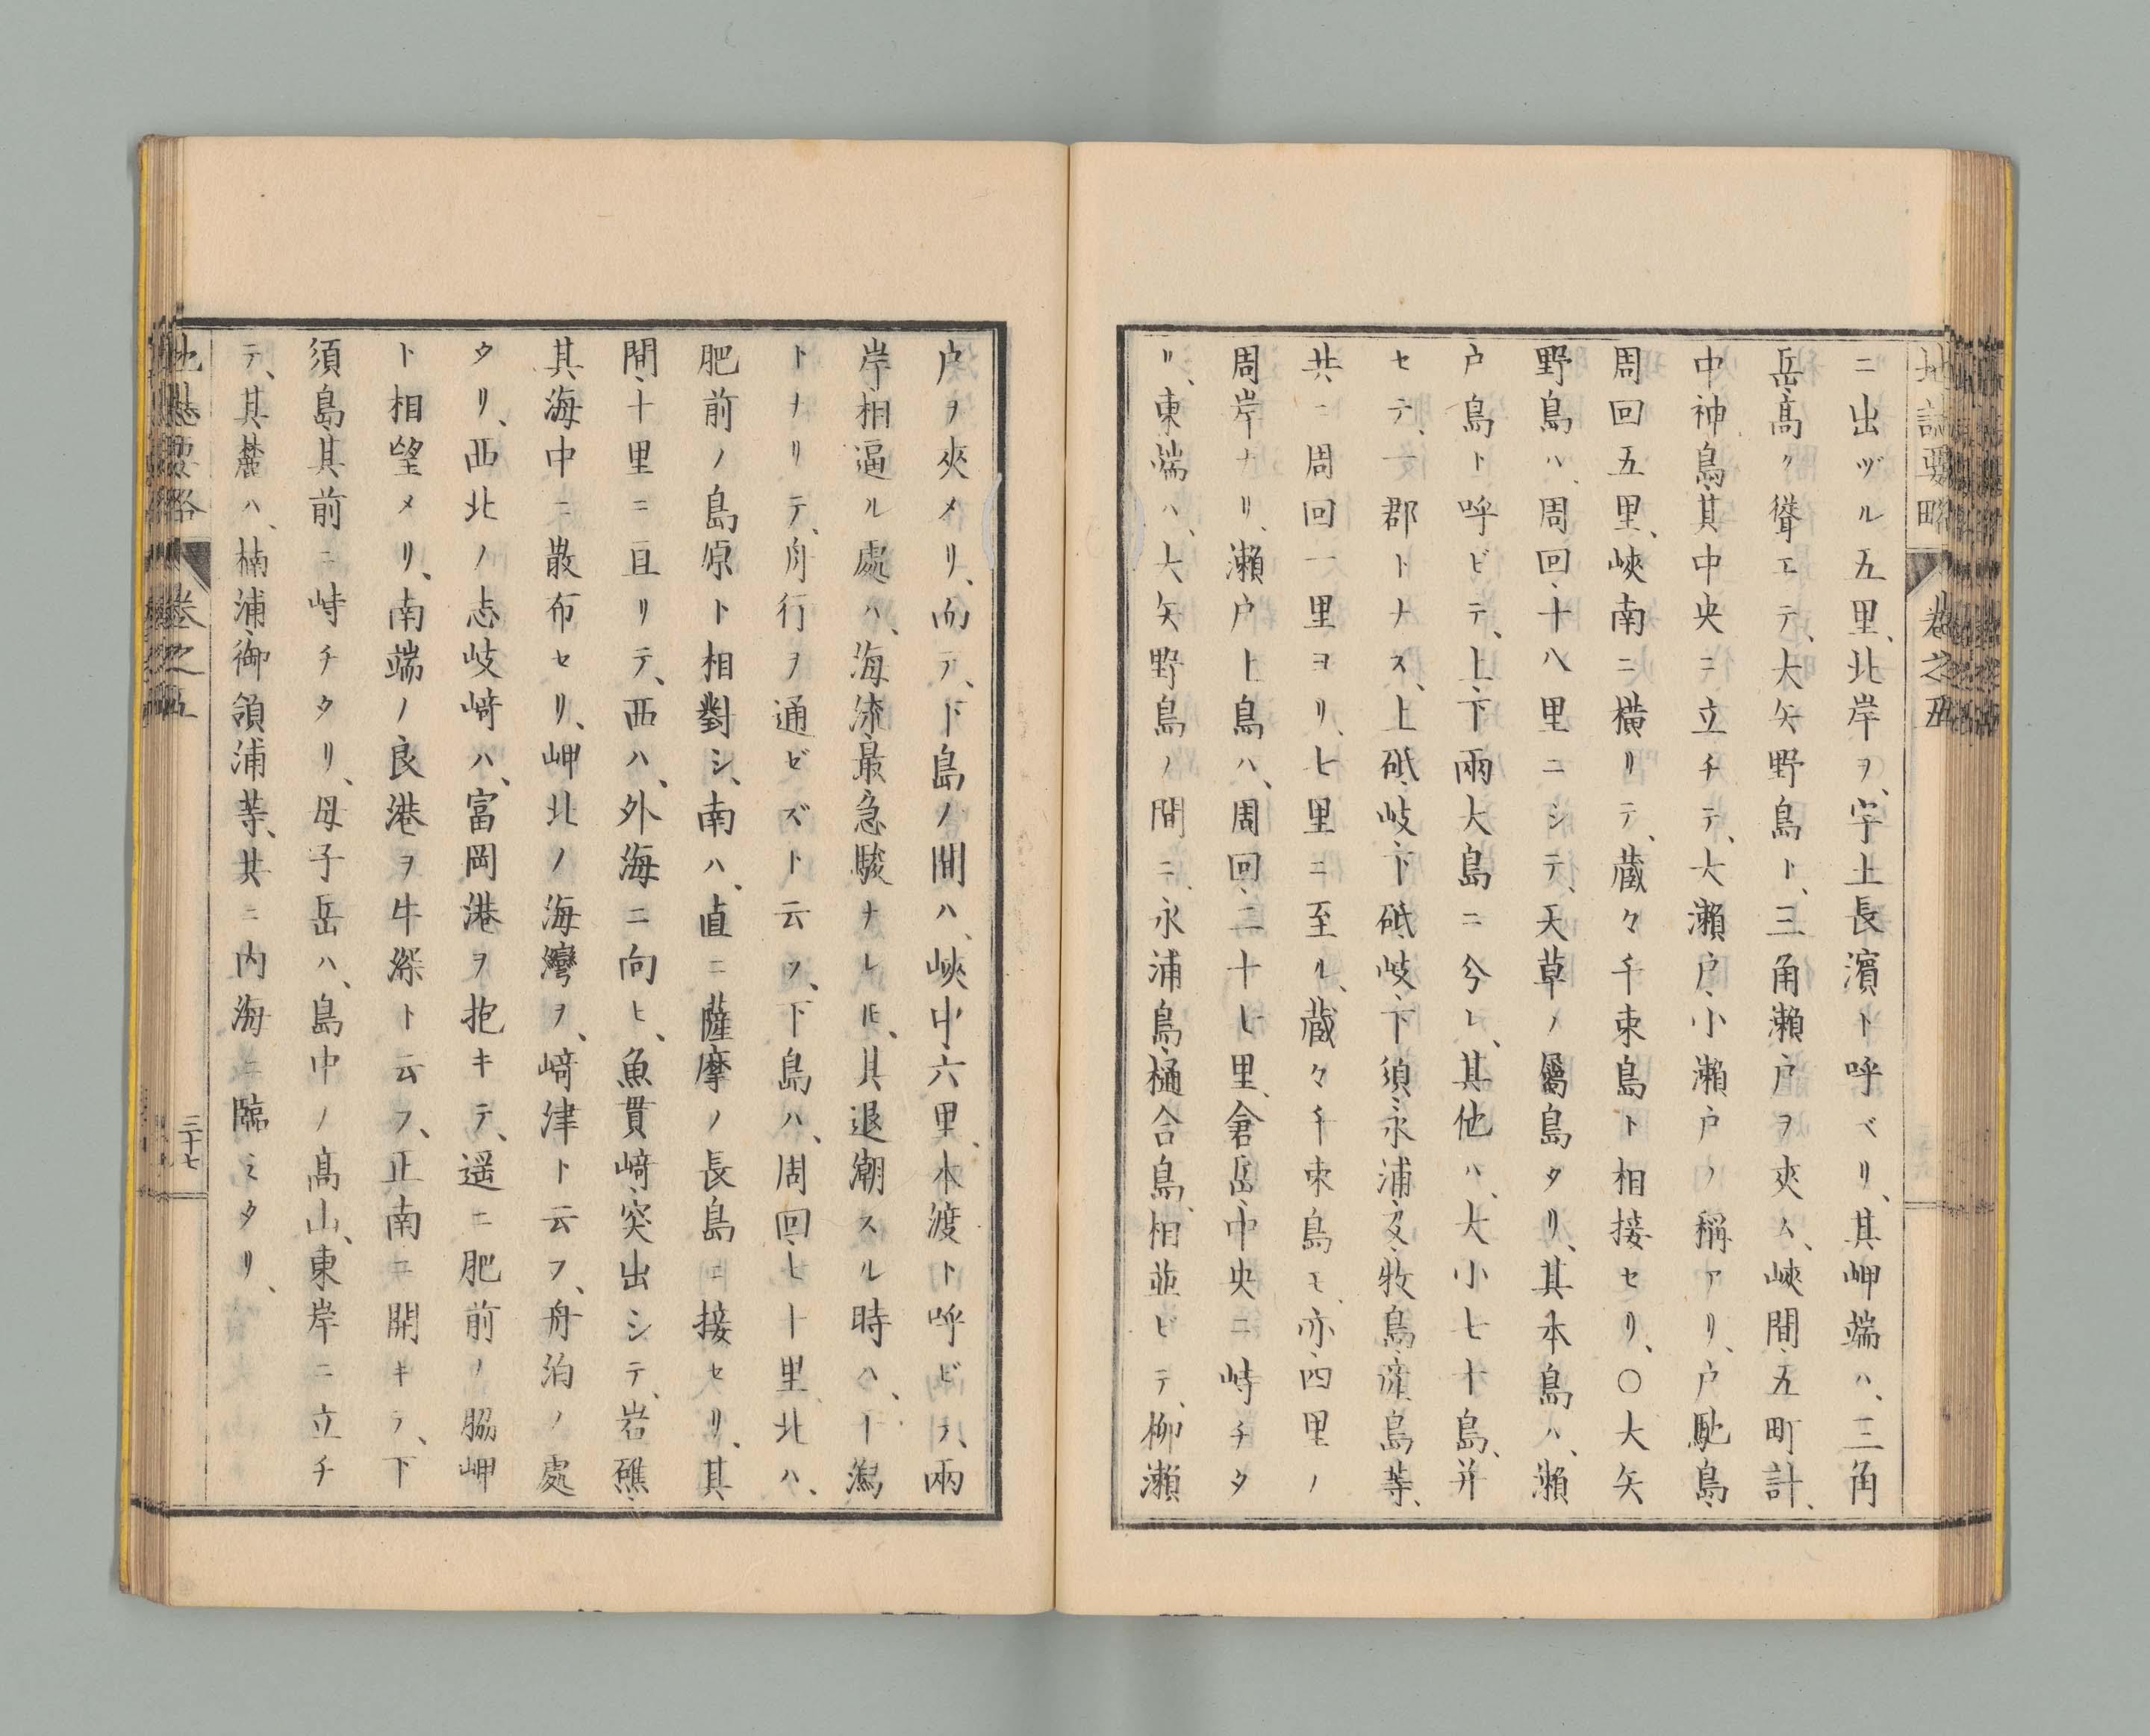 地誌要略 卷之五
ニ出ヅル五里、北岸ヲ、宇土長濱ト呼ベリ、其岬端ハ、三角
岳、高ク聳エテ、大矢野島ト、三角瀬戸ヲ夾ム、峽間、五町計、
中神島、其中央ニ立チテ、大瀬戸、小瀬戸ノ稱アリ、戸馳島、
周回五里、峽南ニ横リテ、藏々千束島ト相接セリ、〇大矢
野島ハ、周回、十八里ニシテ、天草ノ屬島タリ、其本島ハ、瀬
戸島ト呼ビテ、上下兩大島ニ分レ、其他ハ、大小七十島、并
セテ、一郡トナス、上砥岐、下砥岐、下須、永浦、及牧島、濵島等、
共ニ周回一里ヨリ、七里ニ至ル、藏々千束島モ、亦四里ノ
周岸ナリ、瀬戸上島ハ、周回、二十七里、倉岳、中央ニ峙チタ
リ、東端ハ、大矢野島ノ間ニ、永浦島、樋合島、相並ビテ、柳瀬
戸ヲ夾メリ、而テ、下島ノ間ハ、峽中六里、本渡ト呼ビテ、兩
岸相逼ル處ハ、海流最急駿ナレ𪜈、其退潮スル時ハ、干潟
トナリテ、舟行ヲ通ゼズト云フ、下島ハ、周回七十里、北ハ、
肥前ノ島原ト相對シ、南ハ、直ニ薩摩ノ長島ニ接セリ、其
間、十里ニ亘リテ、西ハ、外海ニ向ヒ、魚貫﨑、突出シテ、岩礁、
其海中ニ散布セリ、岬北ノ海灣ヲ、﨑津ト云フ、舟泊ノ處
タリ、西北ノ志岐﨑ハ、富岡港ヲ抱キテ、遥ニ肥前ノ脇岬
ト相望メリ、南端ノ良港ヲ牛深ト云フ、正南ニ開キテ、下
須島、其前ニ峙チタリ、母子岳ハ、島中ノ高山、東岸ニ立チ
テ、其麓ハ、楠浦、御領浦等、共ニ内海ニ臨ミタリ、
地誌要略 卷之五 三十七